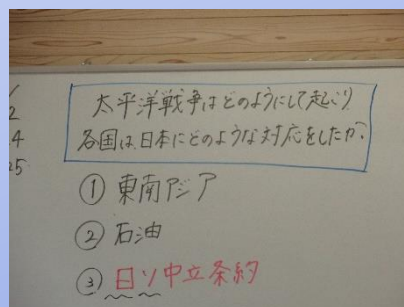 太平洋戦争はどのようにして起こり
各国は、日本にどのような対応をしたか。
① 東南アジア
② 石油
③ 日ソ中立条約
2
4
25